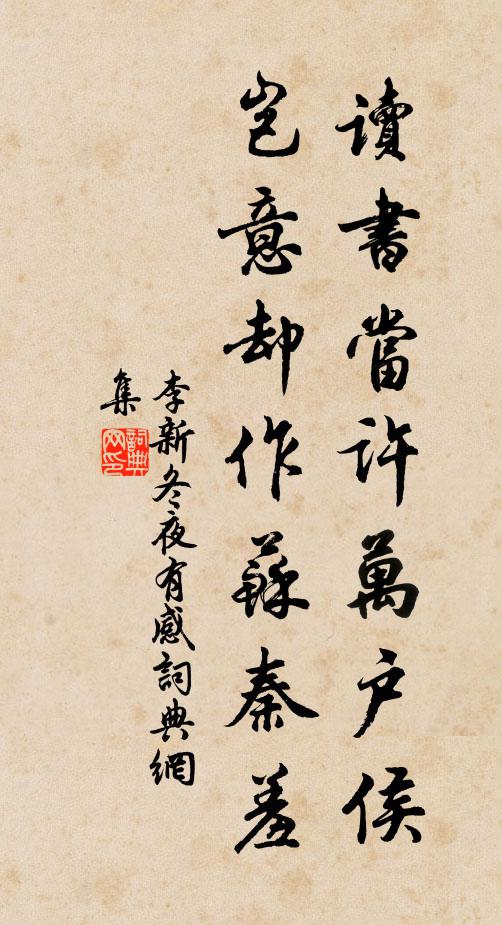 讀書當許萬户侯
豈意却作蘇秦羞
李新冬夜有感詞典網
集
詞典
网印